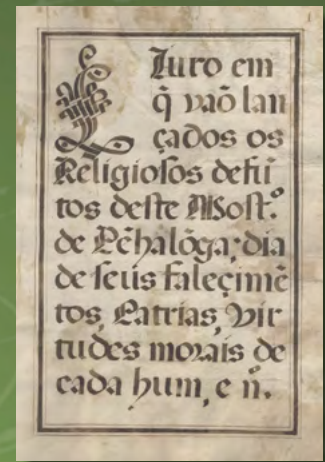 LIuro em
q̃ vaõ lan
çados os
Religioſos defũ
tos deſte Moſt.º
de Pẽhalõga; dia
de ſeus faleçimẽ
tos, Patrias, Vir
tudes morais de
cada hum, e n.º